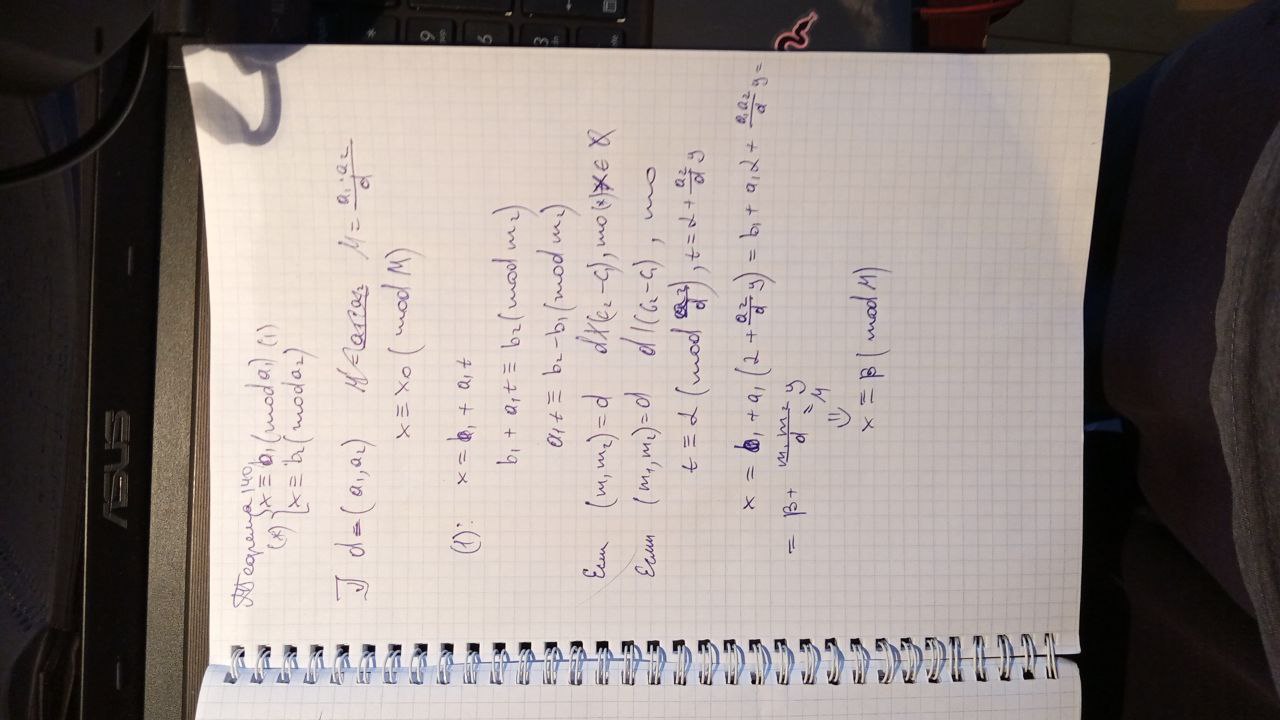 Теорема 140
(*) { x ≡ b₁ (mod a₁) (1)
x ≡ b₂ (mod a₂)
d = (a₁, a₂) M = a₁·a₂/d
x ≡ x₀ (mod M)
(1): x = b₁ + a₁t
b₁ + a₁t ≡ b₂ (mod m₂)
a₁t ≡ b₂ - b₁ (mod m₂)
Если (m₁, m₂) = d d∤(c₂ - c₁), то (*) x ∈ ∅
Если (m₁, m₂) = d d | (c₂ - c₁), то
t ≡ α (mod a₂/d), t = α + a₂/d y
x = b₁ + a₁(α + a₂/d y) = b₁ + a₁α + a₁a₂/d y =
= β + m₁m₂/d y
= M
⇓
x ≡ β (mod M)
ASUS
9
6
3